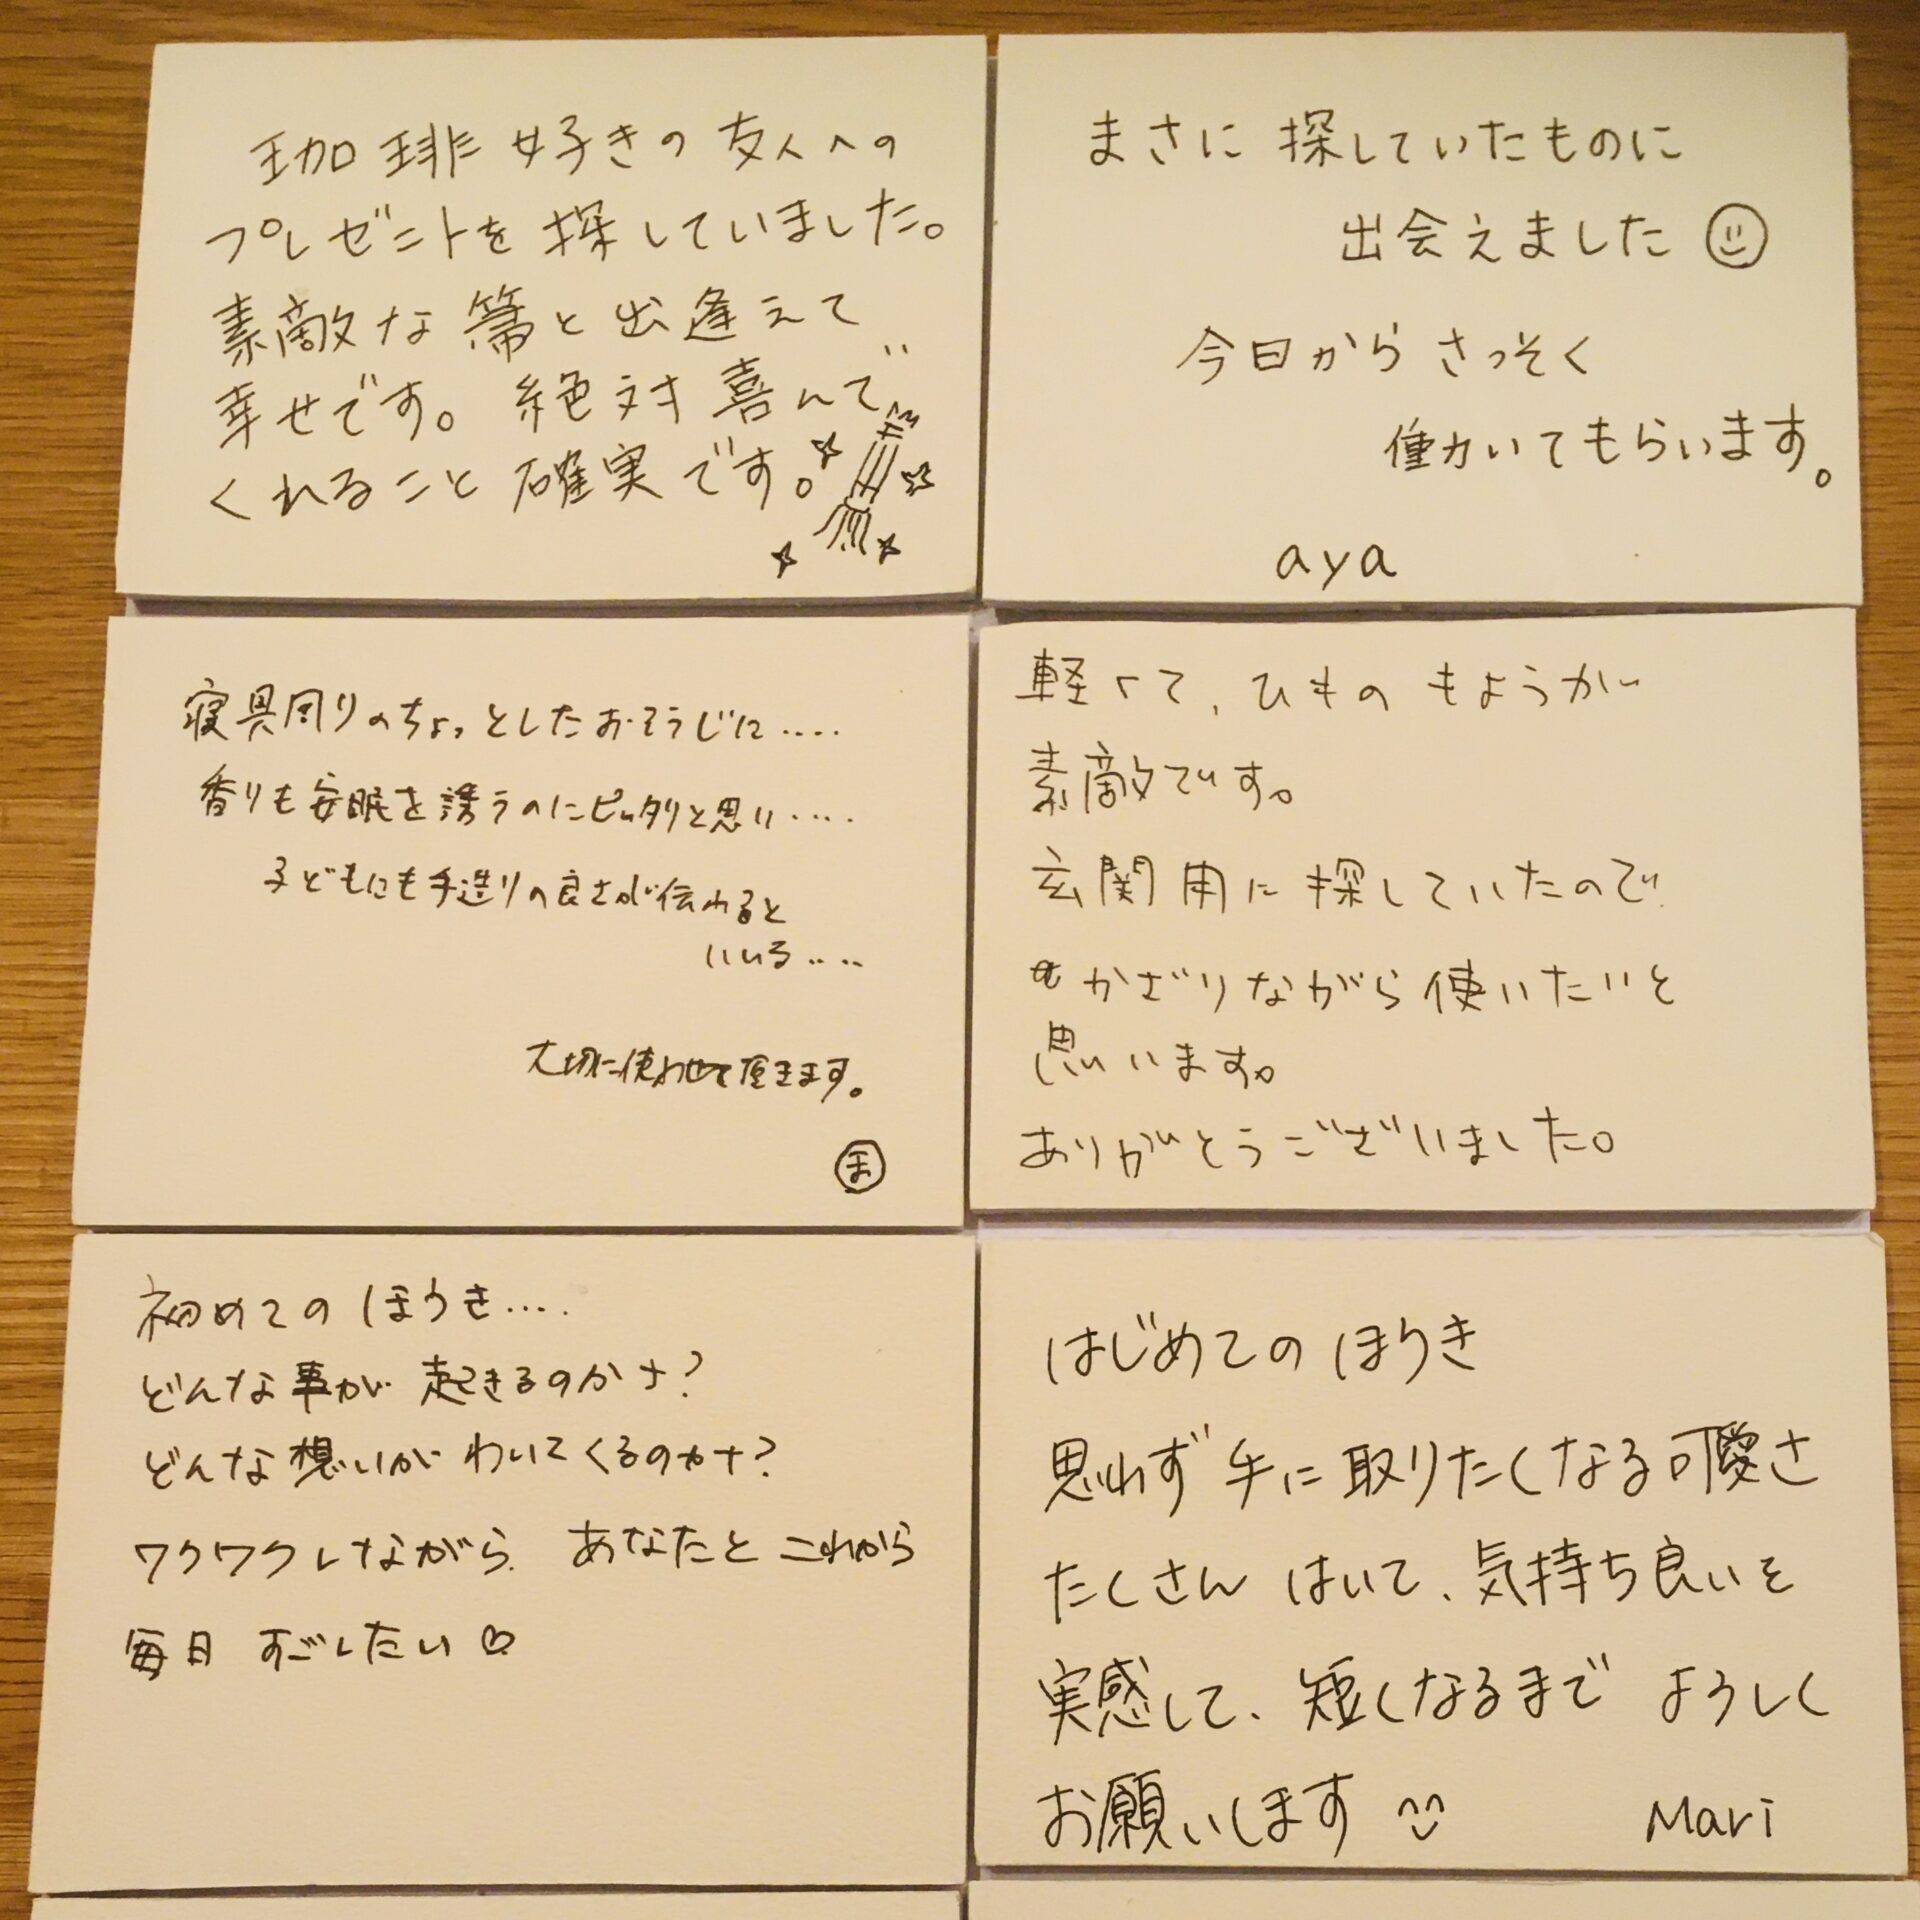 珈琲好きの友人への
プレゼントを探していました。
素敵な箒と出逢えて
幸せです。絶対喜んで
くれること確実です。
まさに探していたものに
出会えました
今日からさっそく
働いてもらいます。
aya
寝具周りのちょっとしたおそうじに....
香りも安眠を誘うのにピッタリと思い....
子どもにも手造りの良さが伝わると
いいな....
大切に使わせて頂きます。
ま
軽くて、ひものもようが
素敵です。
玄関用に探していたので
かざりながら使いたいと
思います。
ありがとうございました。
初めてのほうき....
どんな事が起きるのかナ?
どんな想いがわいてくるのカナ?
ワクワクしながら、あなたとこれから
毎日すごしたい♡
はじめてのほうき
思わず手に取りたくなる可愛さ
たくさんはいて、気持ち良いを
実感して、短くなるまでよろしく
お願いします
Mari